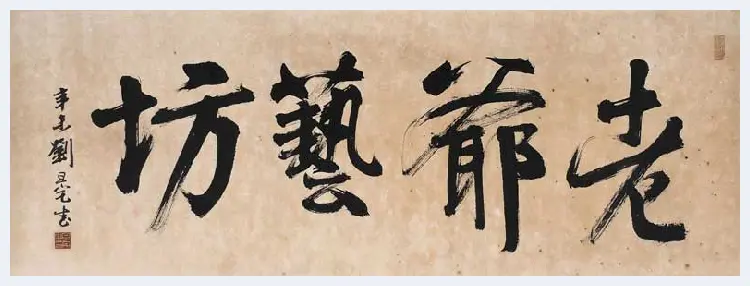 老爺藝坊
辛未劉旦宅書